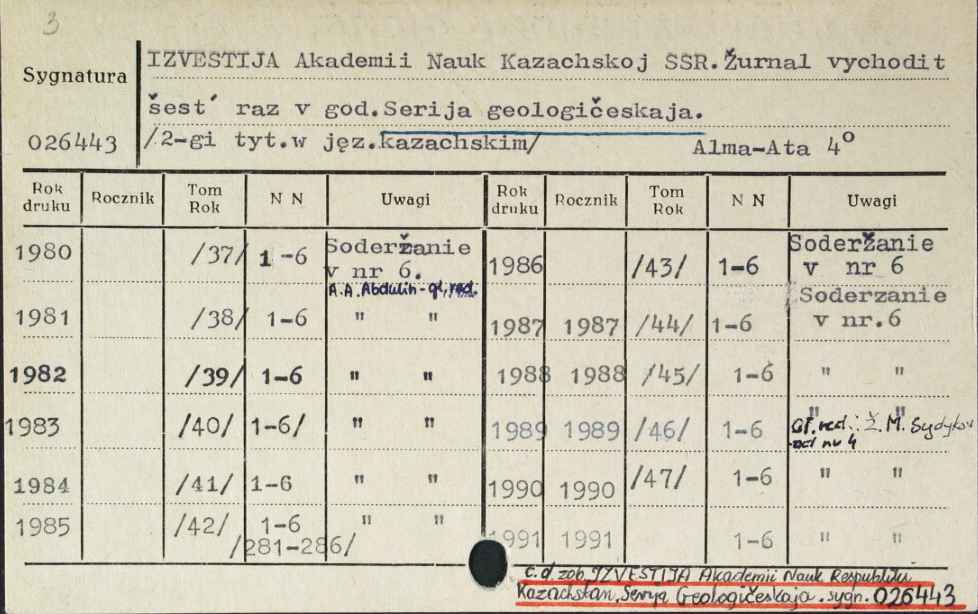 3
IZVESTIJA Akademii Nauk Kazachskoj SSR. Žurnal vychodit
Sygnatura
šest' raz v god. Serija geologičeskaja.
026443 /2-gi tyt. w jęz. kazachskim/ Alma-Ata 4°
Rok druku Rocznik Tom Rok N N Uwagi Rok druku Rocznik Tom Rok N N Uwagi
1980 /37/ 1-6 Soderžanie v nr 6. 1986 /43/ 1-6 Soderžanie v nr 6
A.A. Abdulin - gł. red.
1981 /38/ 1-6 " " 1987 1987 /44/ 1-6 Soderzanie v nr.6
1982 /39/ 1-6 " " 1988 1988 /45/ 1-6 " "
1983 /40/ 1-6/ " " 1989 1989 /46/ 1-6 " "
Gł. red.: Ž. M. Sydykov
od nr 4
1984 /41/ 1-6 " " 1990 1990 /47/ 1-6 " "
1985 /42/ 1-6 " " 1991 1991 1-6 " "
/281-286/
c.d zob. IZVESTIJA Akademii Nauk Respubliki
Kazachstan, Serija Geologičeskaja. sygn. 026443